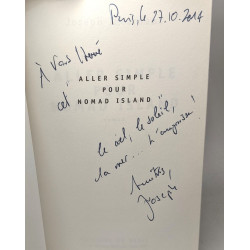 Paris, le 27.10.2014
À vous Hervé
et
ALLER SIMPLE
POUR
NOMAD ISLAND
le ciel, le soleil,
la mer... L'angoisse !
Amitiés,
Joseph